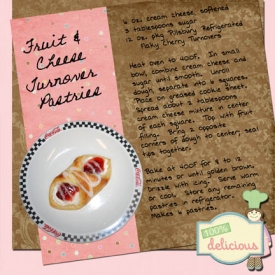 Fruit &
Cheese
Turnover
Pastries
6 oz. cream cheese, softened
3 tablespoons sugar
12 oz. pkg Pillsbury Refrigerated
Flaky Cherry Turnovers
Heat oven to 400F. In small
bowl, combine cream cheese and
sugar until smooth. Unroll
dough; separate into 6 squares.
Place on greased cookie sheet,
spread about 2 tablespoons
cream cheese mixture in center
of each square. Top with fruit
filling. Bring 2 opposite
corners of dough to center; seal
ties together.
Bake at 400F for 8 to 12
minutes or until golden brown;
drizzle with icing. Serve warm
or cool. Store any remaining
pastries in refrigerator.
Makes 6 pastries.
Coca-Cola
100%
delicious